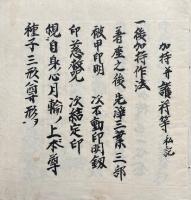 加持并護符等 私記
一後加持作法
着座之後 先淨三業三部
被甲印明 次不動印明釼
印慈救咒 次結定印
觀自身心月輪ノ上本尊
種子三形尊形ヲ